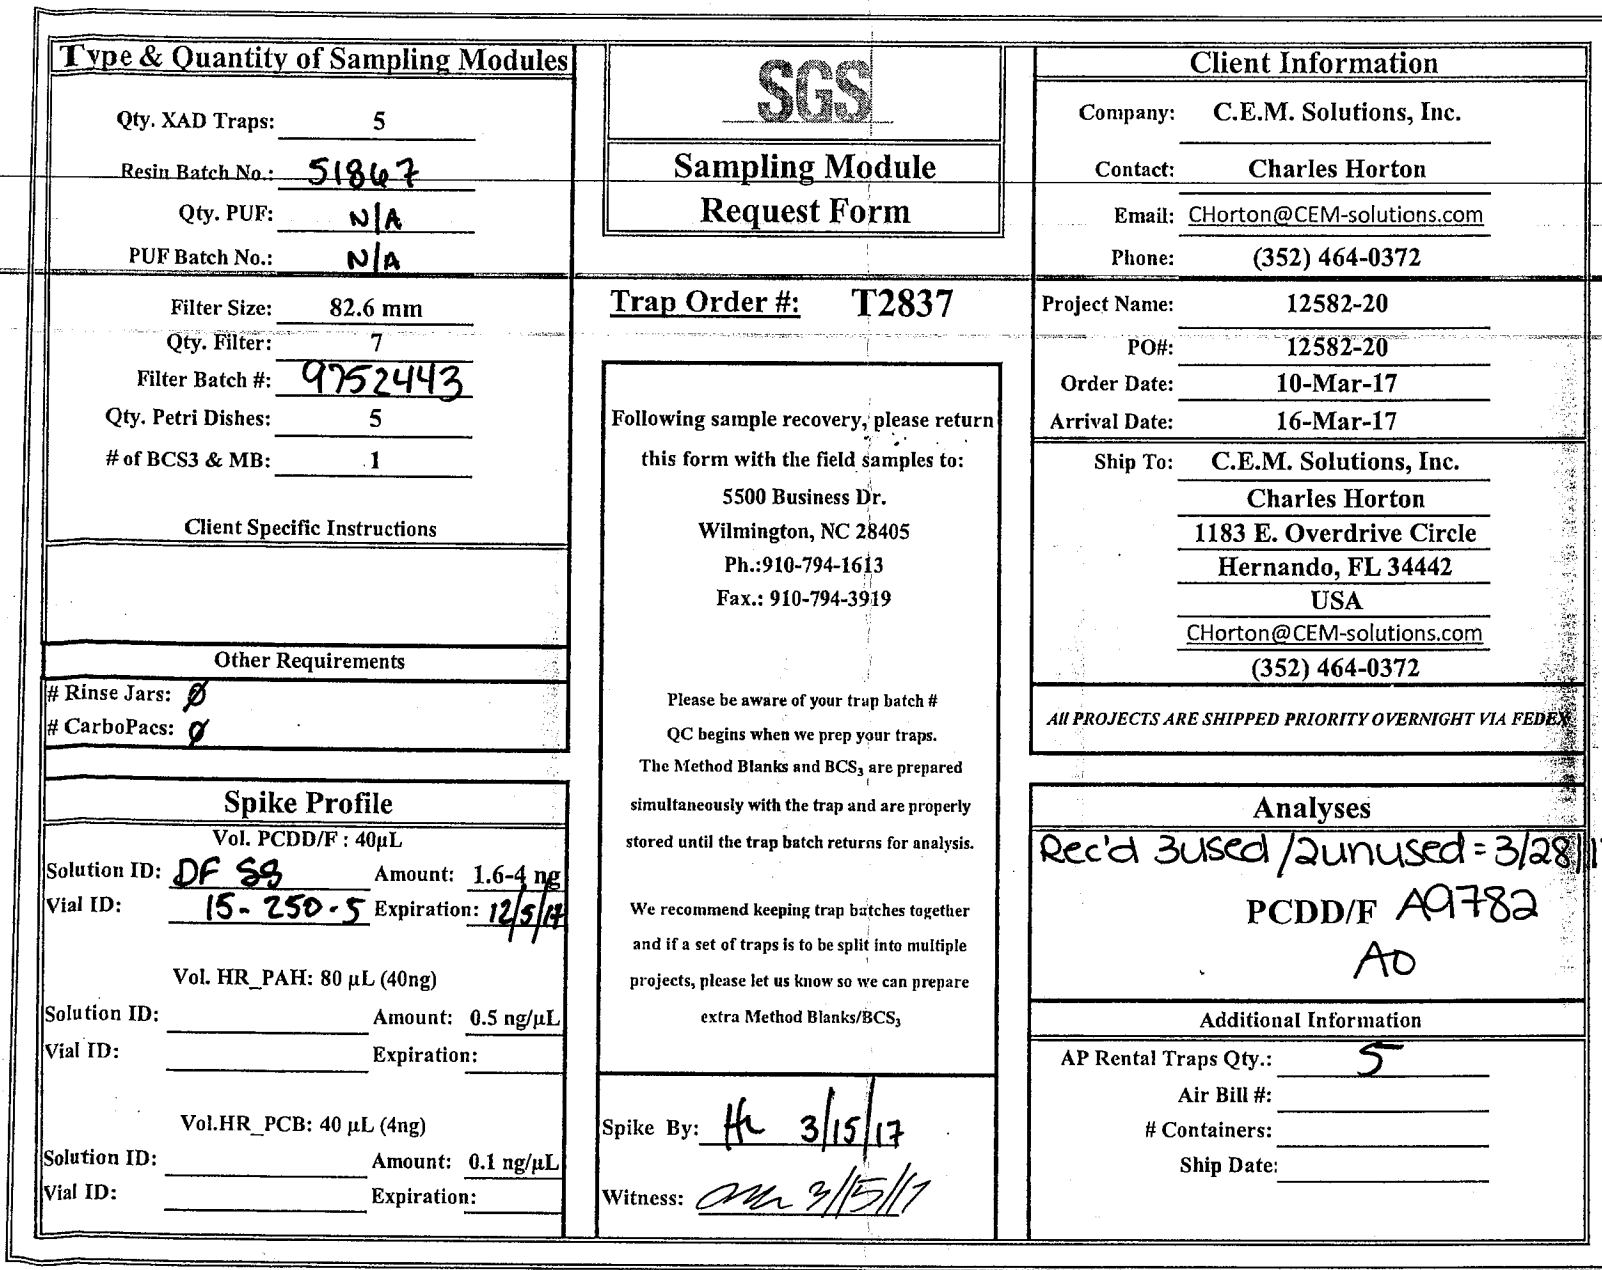 Type & Quantity of Sampling Modules
Qty. XAD Traps: 5
Resin Batch No.: 51867
Qty. PUF: N/A
PUF Batch No.: N/A
Filter Size: 82.6 mm
Qty. Filter: 7
Filter Batch #: 9752443
Qty. Petri Dishes: 5
# of BCS3 & MB: 1
Client Specific Instructions
Other Requirements
# Rinse Jars: Ø
# CarboPacs: Ø
Spike Profile
Vol. PCDD/F : 40µL
Solution ID: DF SS Amount: 1.6-4 ng
Vial ID: 15-250-5 Expiration: 12/5/17
Vol. HR_PAH: 80 µL (40ng)
Solution ID: Amount: 0.5 ng/µL
Vial ID: Expiration:
Vol.HR_PCB: 40 µL (4ng)
Solution ID: Amount: 0.1 ng/µL
Vial ID: Expiration:
SGS
Sampling Module
Request Form
Trap Order #: T2837
Following sample recovery, please return
this form with the field samples to:
5500 Business Dr.
Wilmington, NC 28405
Ph.:910-794-1613
Fax.: 910-794-3919
Please be aware of your trap batch #
QC begins when we prep your traps.
The Method Blanks and BCS3 are prepared
simultaneously with the trap and are properly
stored until the trap batch returns for analysis.
We recommend keeping trap batches together
and if a set of traps is to be split into multiple
projects, please let us know so we can prepare
extra Method Blanks/BCS3
Spike By: 3/15/17
Witness: 3/15/17
Client Information
Company: C.E.M. Solutions, Inc.
Contact: Charles Horton
Email: CHorton@CEM-solutions.com
Phone: (352) 464-0372
Project Name: 12582-20
PO#: 12582-20
Order Date: 10-Mar-17
Arrival Date: 16-Mar-17
Ship To: C.E.M. Solutions, Inc.
Charles Horton
1183 E. Overdrive Circle
Hernando, FL 34442
USA
CHorton@CEM-solutions.com
(352) 464-0372
All PROJECTS ARE SHIPPED PRIORITY OVERNIGHT VIA FEDEX
Analyses
Rec'd 3used/2unused = 3/28/17
PCDD/F A9782
AO
Additional Information
AP Rental Traps Qty.: 5
Air Bill #:
# Containers:
Ship Date: